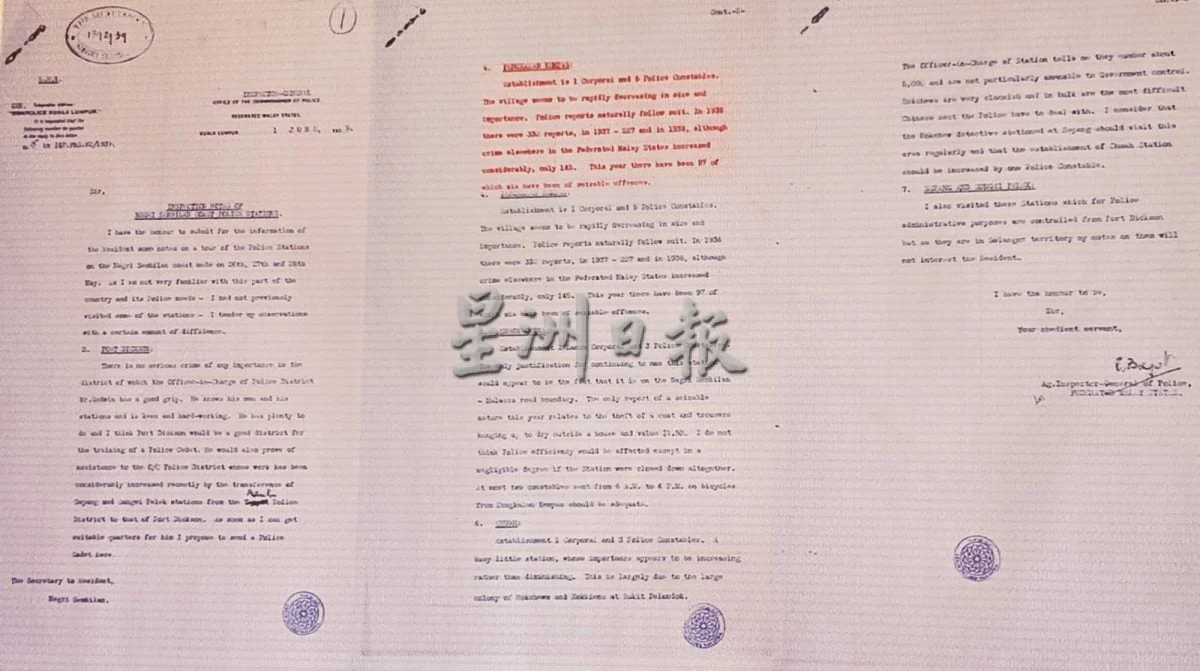 1
1392/39
INSPECTOR-GENERAL
OFFICE OF THE COMMISSIONER OF POLICE
FEDERATED MALAY STATES.
KUALA LUMPUR.
Telegraphic Address:
KUALA LUMPUR."
It is requested that the
following number be quoted
in the reply to this letter
Sir,
INSPECTION NOTES OF
NEGRI SEMBILAN COAST POLICE STATIONS.
I have the honour to submit for the information of
the Resident some notes on a tour of the Police Stations
on the Negri Sembilan coast made on 26th, 27th and 28th
May. As I am not very familiar with this part of the
country and its Police needs - I had not previously
visited some of the stations - I tender my observations
with a certain amount of diffidence.
2. PORT DICKSON:
There is no serious crime of any importance in the
district of which the Officer-in-Charge of Police District
Mr.Godwin has a good grip. He knows his men and his
stations and is keen and hard-working. He has plenty to
do and I think Port Dickson would be a good district for
the training of a Police Cadet. He would also prove of
assistance to the O/C Police District whose work has been
considerably increased recently by the transference of
Sepang and Sungei Pelek stations from the Police
District to that of Port Dickson. As soon as I can get
suitable quarters for him I propose to send a Police
Cadet here.
The Secretary to Resident,
Negri Sembilan.
Cont.-2-
4. PENGKALAN KEMPAS:
Establishment is 1 Corporal and 5 Police Constables.
The village seems to be rapidly decreasing in size and
importance. Police reports naturally follow suit. In 1936
there were 332 reports, in 1937 - 227 and in 1938, although
crime elsewhere in the Federated Malay States increased
considerably, only 145. This year there have been 97 of
which six have been of seizable offences.
4.
Establishment is 1 Corporal and 5 Police Constables.
The village seems to be rapidly decreasing in size and
importance. Police reports naturally follow suit. In 1936
there were 332 reports, in 1937 - 227 and in 1938, although
crime elsewhere in the Federated Malay States increased
considerably, only 145. This year there have been 97 of
six have been of seizable offences.
星洲日報
Establishment 1 Corporal and 3 Police
only justification for continuing to man this
would appear to be the fact that it is on the Negri Sembilan
- Malacca road boundary. The only report of a seizable
nature this year relates to the theft of a coat and trousers
hanging up to dry outside a house and value $1.50. I do not
think Police efficiency would be affected except in a
negligible degree if the Station were closed down altogether.
At most two constables sent from 6 A.M. to 6 P.M. on bicycles
from Pengkalan Kempas should be adequate.
6. CHUAH:
Establishment 1 Corporal and 3 Police Constables. A
busy little station, whose importance appears to be increasing
rather than diminishing. This is largely due to the large
colony of Hokchews and Hokkiens at Bukit Pelandok.
The Officer-in-Charge of Station tells me they number about
5,000 and are not particularly amenable to Government control.
Hokchews are very clannish and in bulk are the most difficult
Chinese sect the Police have to deal with. I consider that
the Hokchew detective stationed at Sepang should visit this
area regularly and that the establishment of Chuah Station
should be increased by one Police Constable.
7. SEPANG AND SUNGEI PELEK:
I also visited these Stations which for Police
administrative purposes are controlled from Port Dickson
but as they are in Selangor territory my notes on them will
not interest the Resident.
I have the honour to be,
Sir,
Your obedient servant,
Ag.Inspector-General of Police,
FEDERATED MALAY STATES.